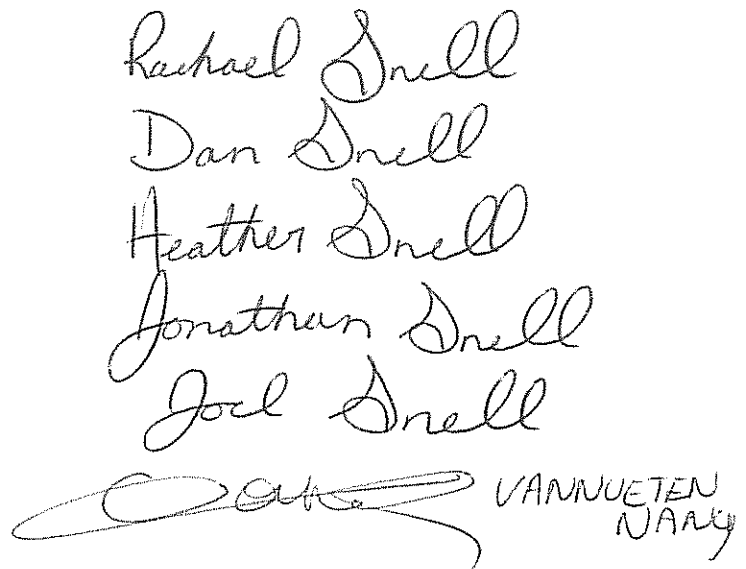 Rachael Snell
Dan Snell
Heather Snell
Jonathan Snell
Joel Snell
VANNUETEN
NANCY